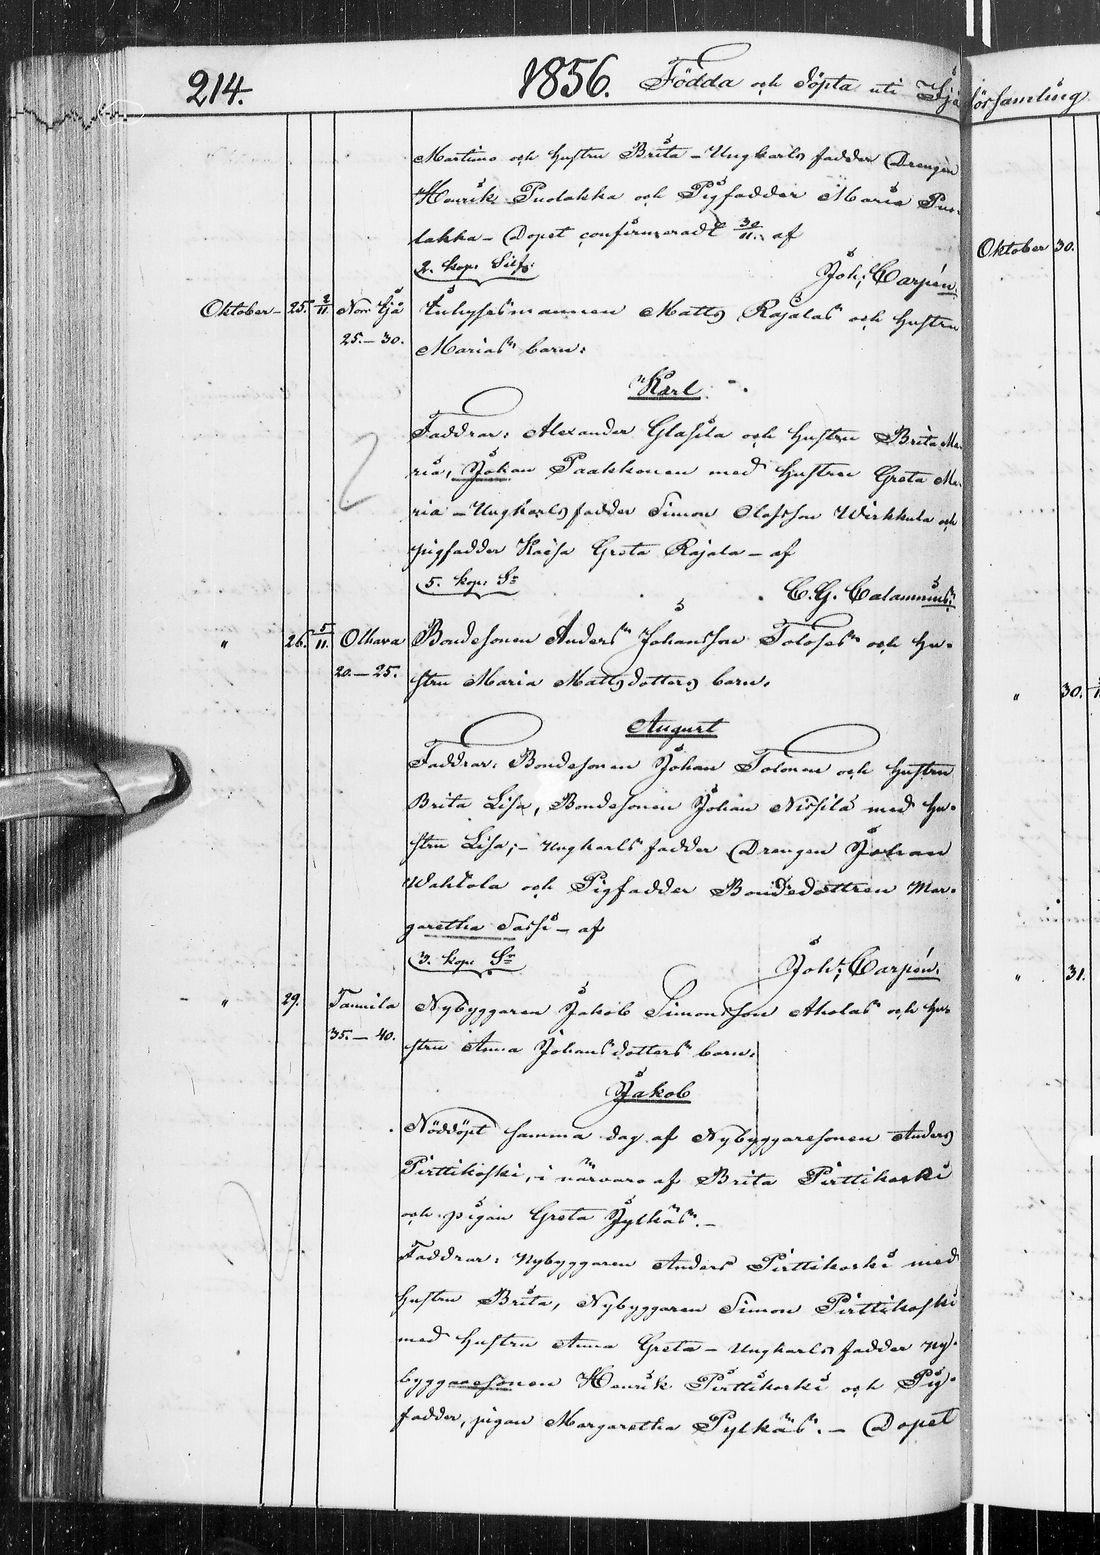 214. 1856. Födda och döpta uti Ijå församling
Martimo och hustru Brita – Ungkarls fadder Drengen
Henrik Pudakka och Pigfadder Maria Pu-
dakka – Dopet confirmeradt 30/11. af
2. kop: Silf:
Joh: Carpén.
Oktober – 25. 2/11. Norr Ijå Inhysesmannen Matts Rajalas och hustru
25. – 30. Marias barn:
Karl
Faddrar: Alexander Glasila och hustru Brita Ma-
ria, Johan Paakkonen med hustru Greta Ma-
ria – Ungkarls fadder Simon Olofsson Wirkkula och
pigfadder Kaisa Greta Rajala – af
5. kop: Sr
C. G. Calamnius.
" 26. 5/11. Olhava Bondesonen Anders Johansson Tolosens och hu-
20. – 25. stru Maria Mattsdotters barn,
August
Faddrar: Bondesonen Johan Tolonen och hustru
Brita Lisa, Bondesonen Johan Nissilä med hu-
stru Lisa; – Ungkarls fadder Drengen Johan
Wahtola och Pigfadder Bondedottren Mar-
garetha Sassi – af
3. kop: Sr
Joh: Carpén.
" 29. Tannila Nybyggaren Jakob Simonsson Aholas och hu-
35. – 40. stru Anna Johansdotters barn.
Jakob
Nöddöpt samma dag af Nybyggaresonen Anders
Pirttikoski, i närvaro af Brita Pirttikoski
och pigan Greta Jylkäs. –
Faddrar: Nybyggaren Anders Pirttikoski med
hustru Brita, Nybyggaren Simon Pirttikoski
med hustru Anna Greta – Ungkarls fadder Ny-
byggaresonen Henrik Pirttikoski och Pig-
fadder, pigan Margaretha Pylkäs. – Dopet
Oktober 30.
" 30.
" 31.